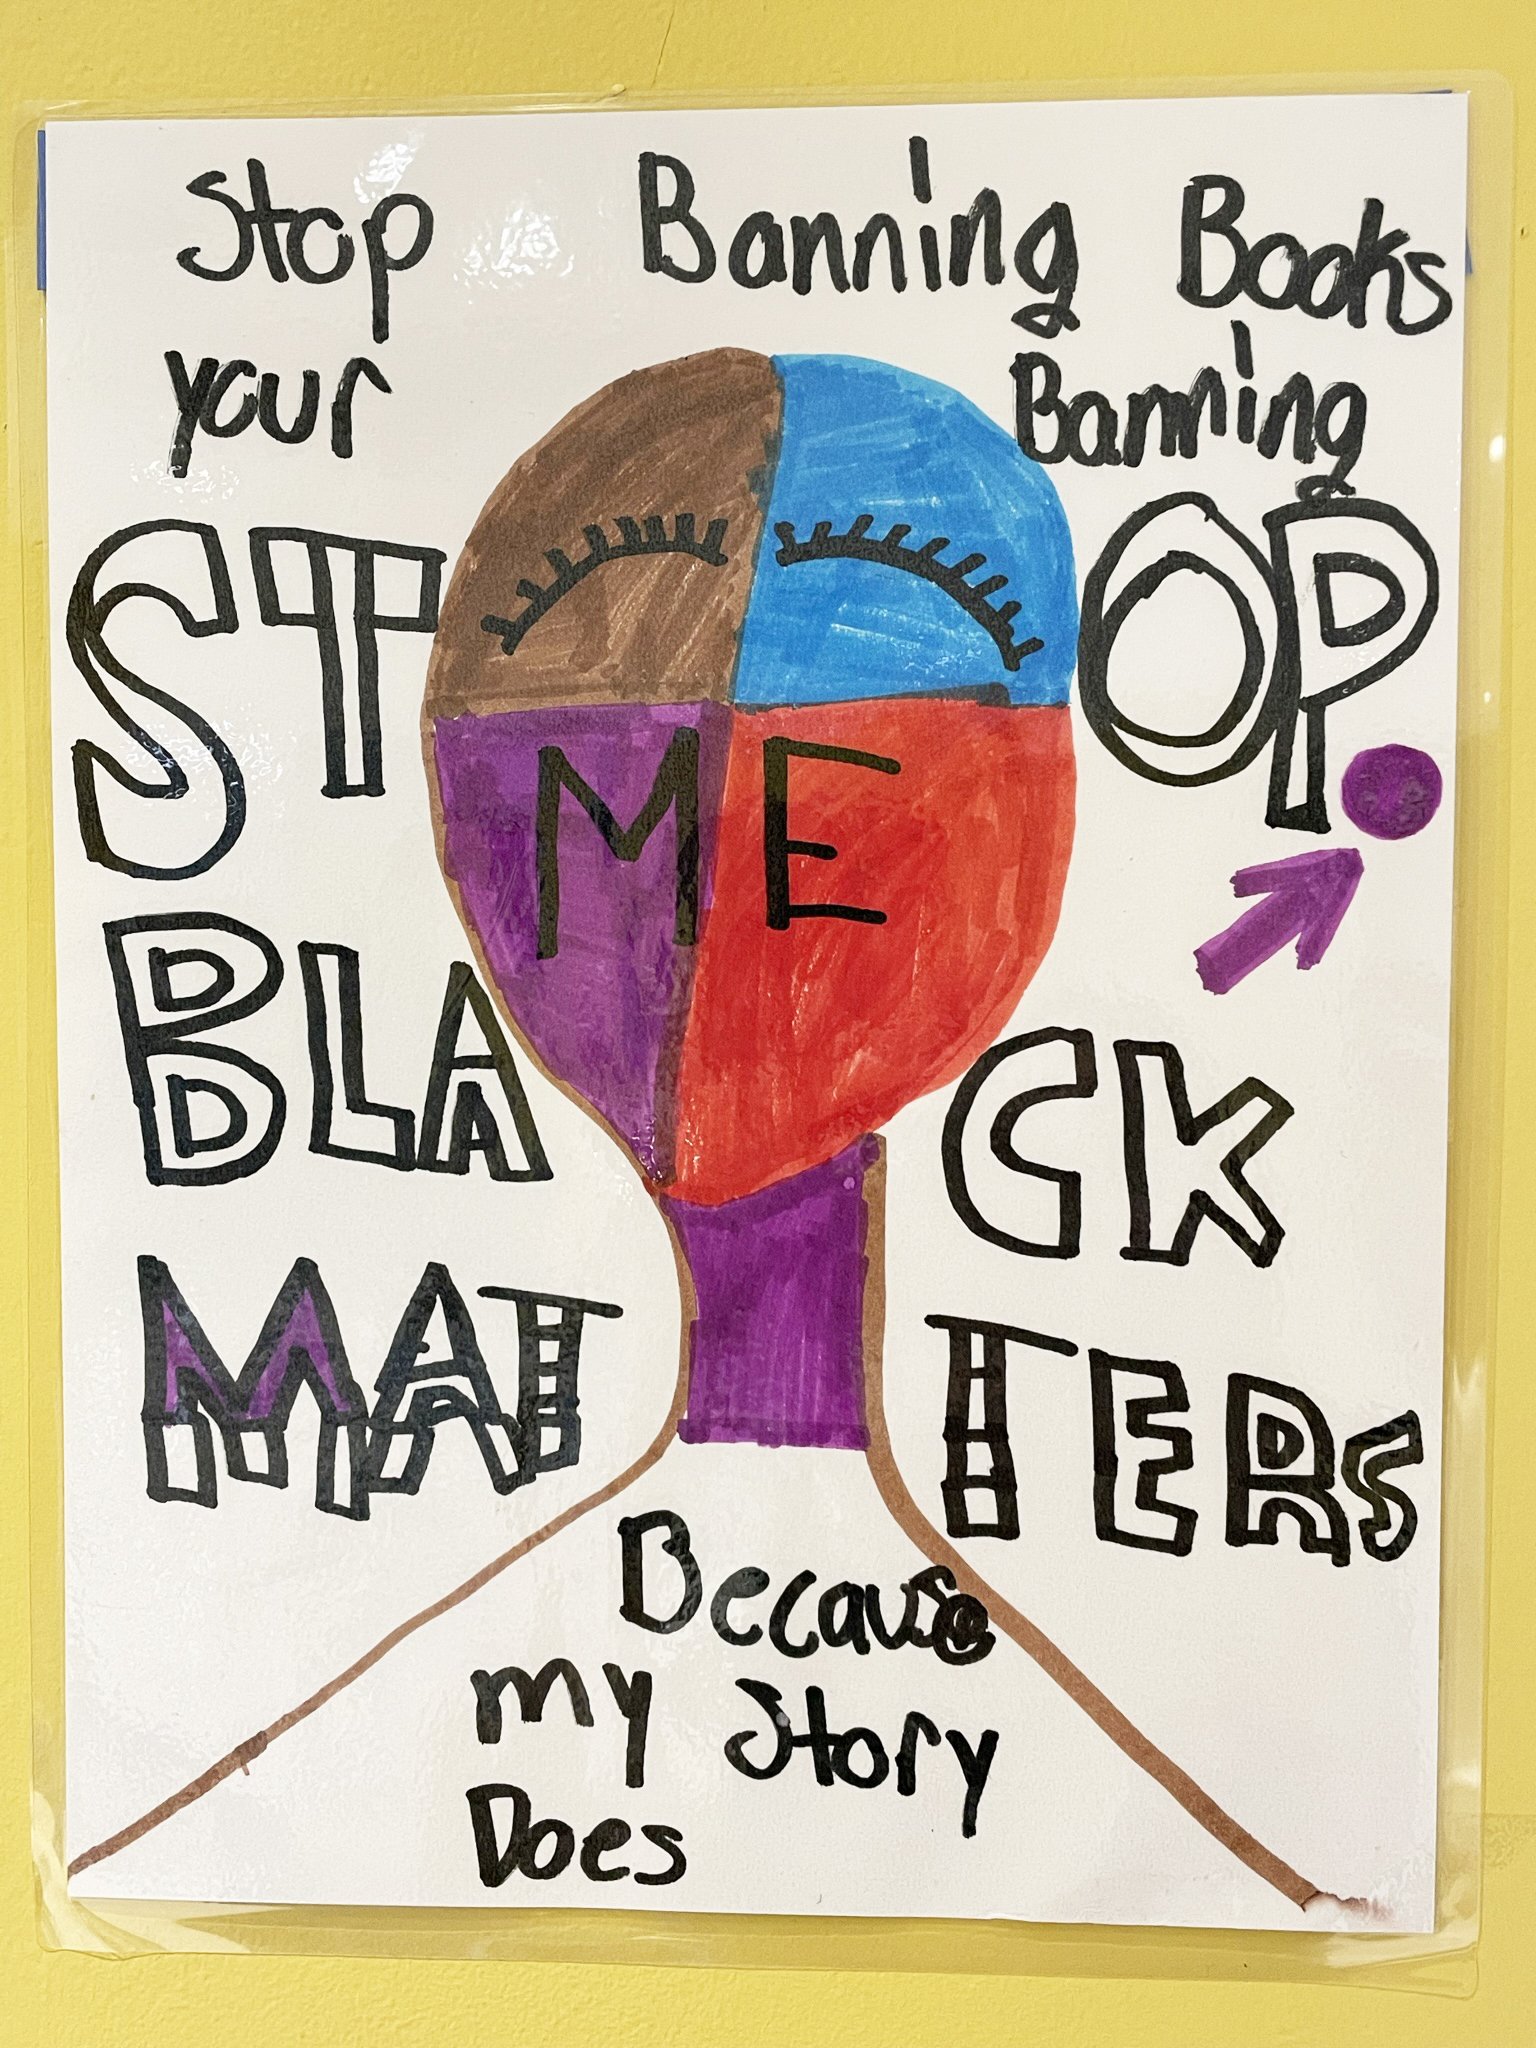 Stop Banning Books
your Banning
STOP.
ME
BLACK
MATTERS
Because
my story
Does